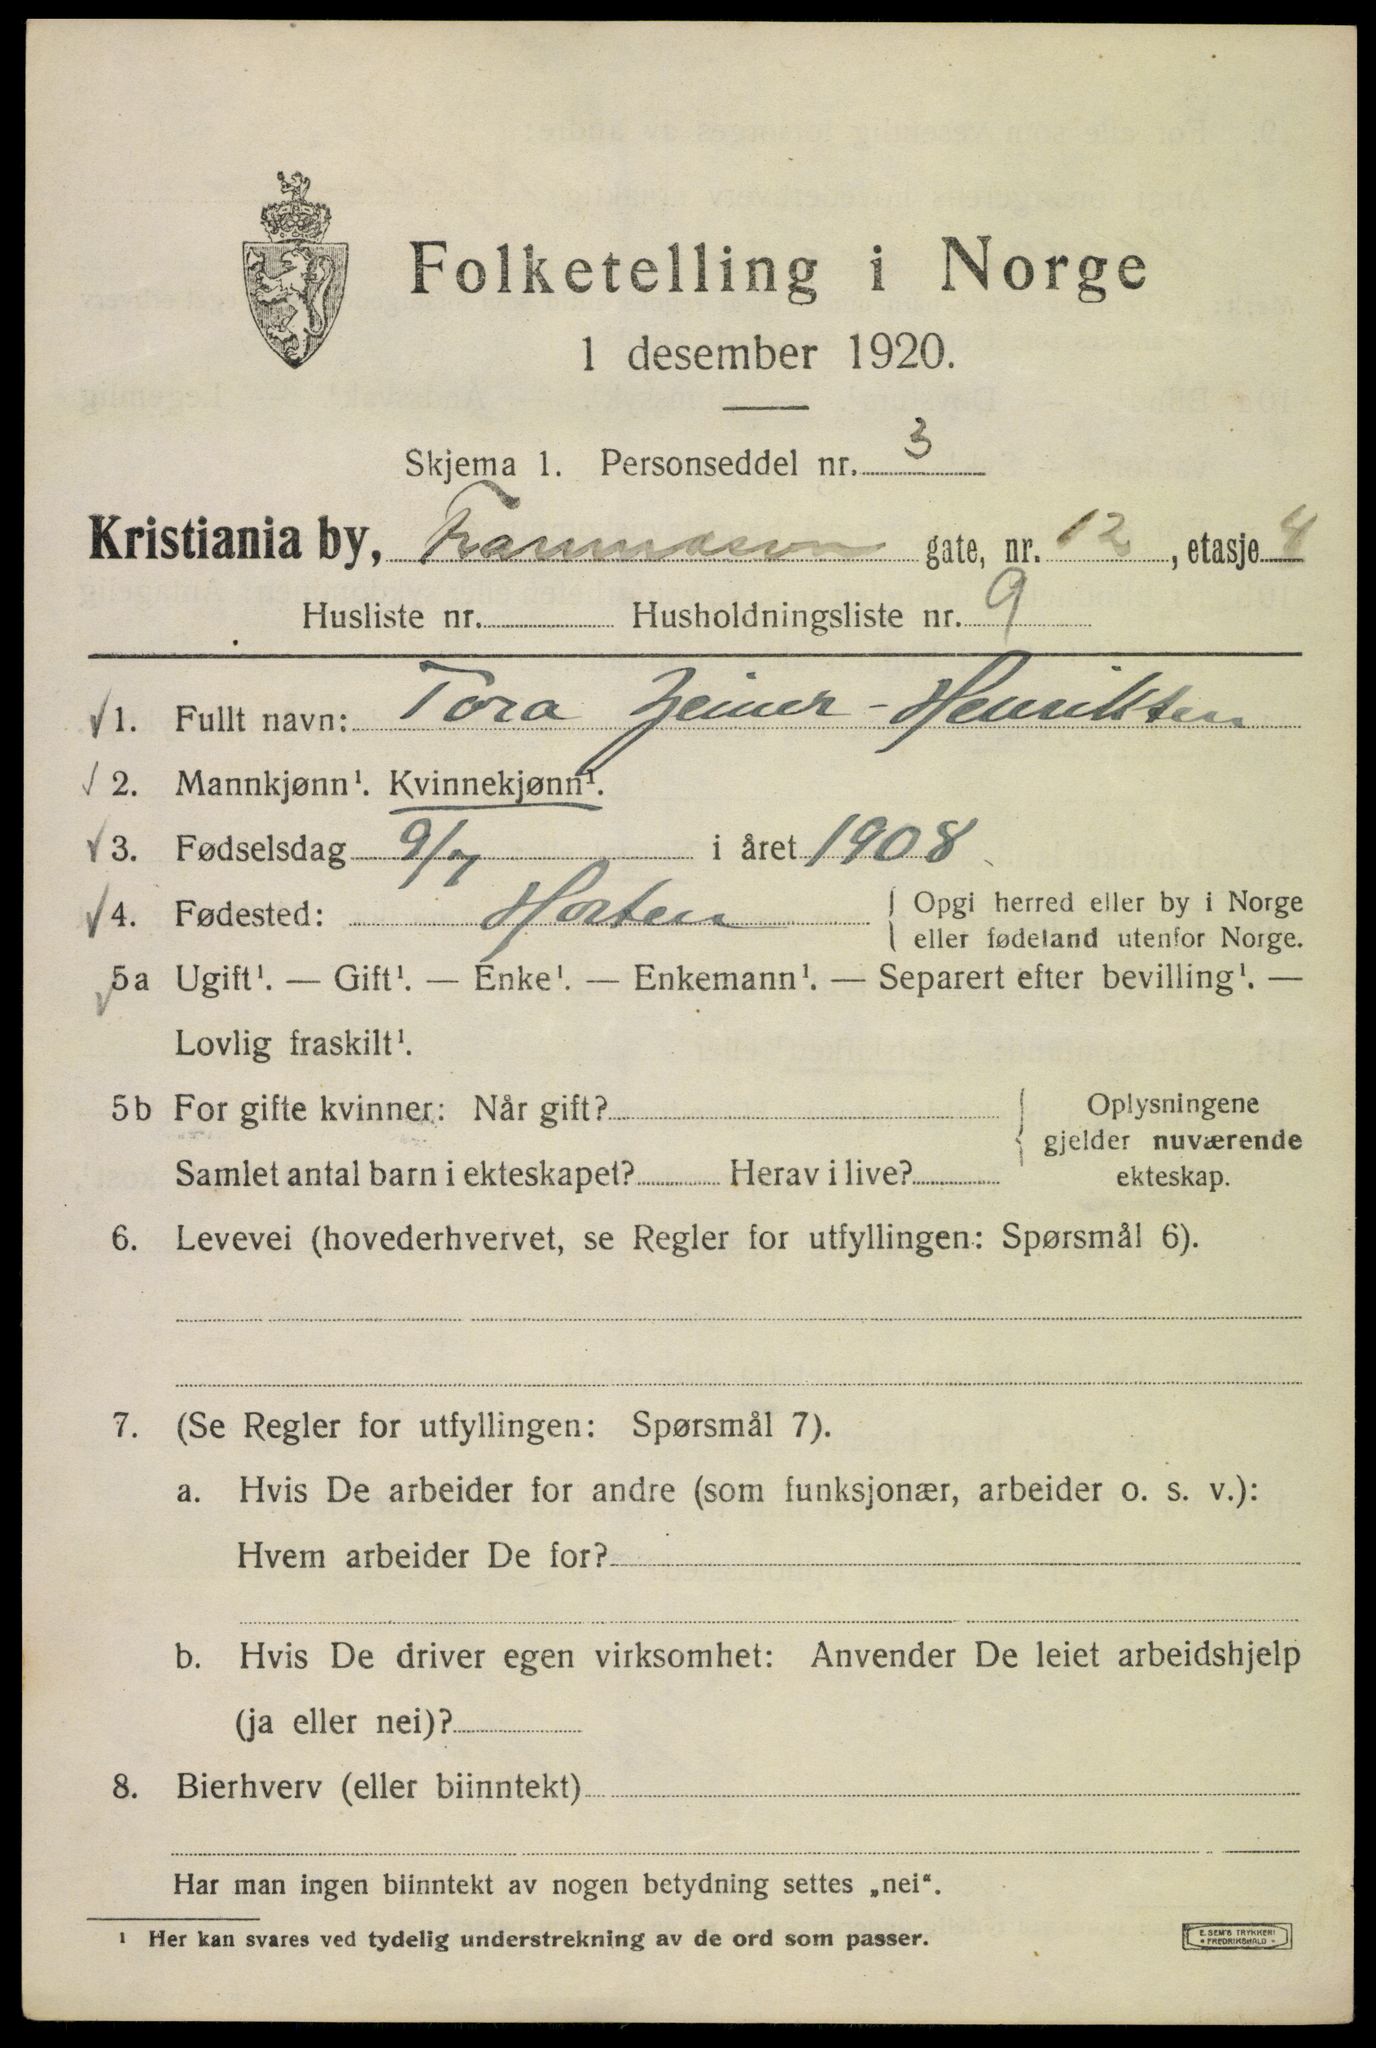 Folketelling i Norge
1 desember 1920.
Skjema 1. Personseddel nr. 3
Kristiania by, Framnæsvn gate, nr. 12, etasje 4
Husliste nr. Husholdningsliste nr. 9
√ 1. Fullt navn: Tora Zeiner-Henriksen
√ 2. Mannkjønn¹. Kvinnekjønn¹.
√ 3. Fødselsdag 9/7 i året 1908
√ 4. Fødested: Horten { Opgi herred eller by i Norge
eller fødeland utenfor Norge.
√ 5a Ugift¹. — Gift¹. — Enke¹. — Enkemann¹. — Separert efter bevilling¹. —
Lovlig fraskilt¹.
5b For gifte kvinner: Når gift? { Oplysningene
gjelder nuværende
Samlet antal barn i ekteskapet? Herav i live? ekteskap.
6. Levevei (hovederhvervet, se Regler for utfyllingen: Spørsmål 6).
7. (Se Regler for utfyllingen: Spørsmål 7).
a. Hvis De arbeider for andre (som funksjonær, arbeider o. s. v.):
Hvem arbeider De for?
b. Hvis De driver egen virksomhet: Anvender De leiet arbeidshjelp
(ja eller nei)?
8. Bierhverv (eller biinntekt)
Har man ingen biinntekt av nogen betydning settes „nei“.
¹ Her kan svares ved tydelig understrekning av de ord som passer.
E. SEM'S TRYKKERI
• FREDRIKSHALD •